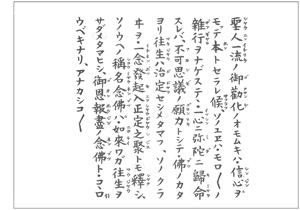 聖人一流ノ御勸化ノオモムキハ信心ヲ
モツテ本トセラレ候、ソノユヱハ、モロ〱ノ
雜行ヲナゲステヽ一心ニ弥陀ニ歸命
スレバ、不可思議ノ願力トシテ佛ノカタ
ヨリ往生ハ治定セシメタマフ、ソノクラ
ヰヲ一念發起入正定之聚トモ釋シ、
ソノウヘノ稱名念佛ハ如來ワガ往生ヲ
サダメタマヒシ、御恩報盡ノ念佛ト、コヽロ
ウベキナリ、アナカシコ〱